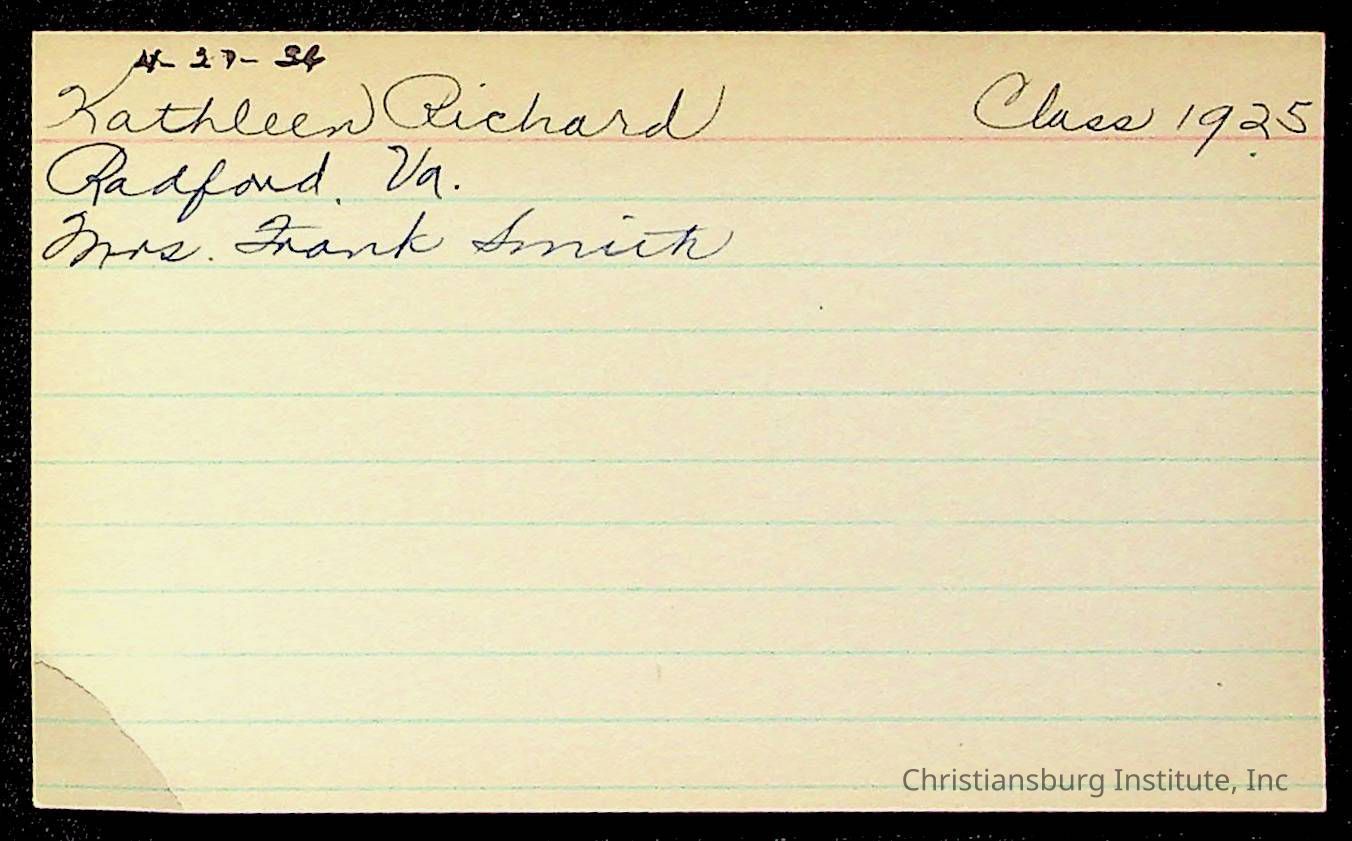 4-27-36
Kathleen Richard Class 1925
Radford, Va.
Mrs. Frank Smith
Christiansburg Institute, Inc